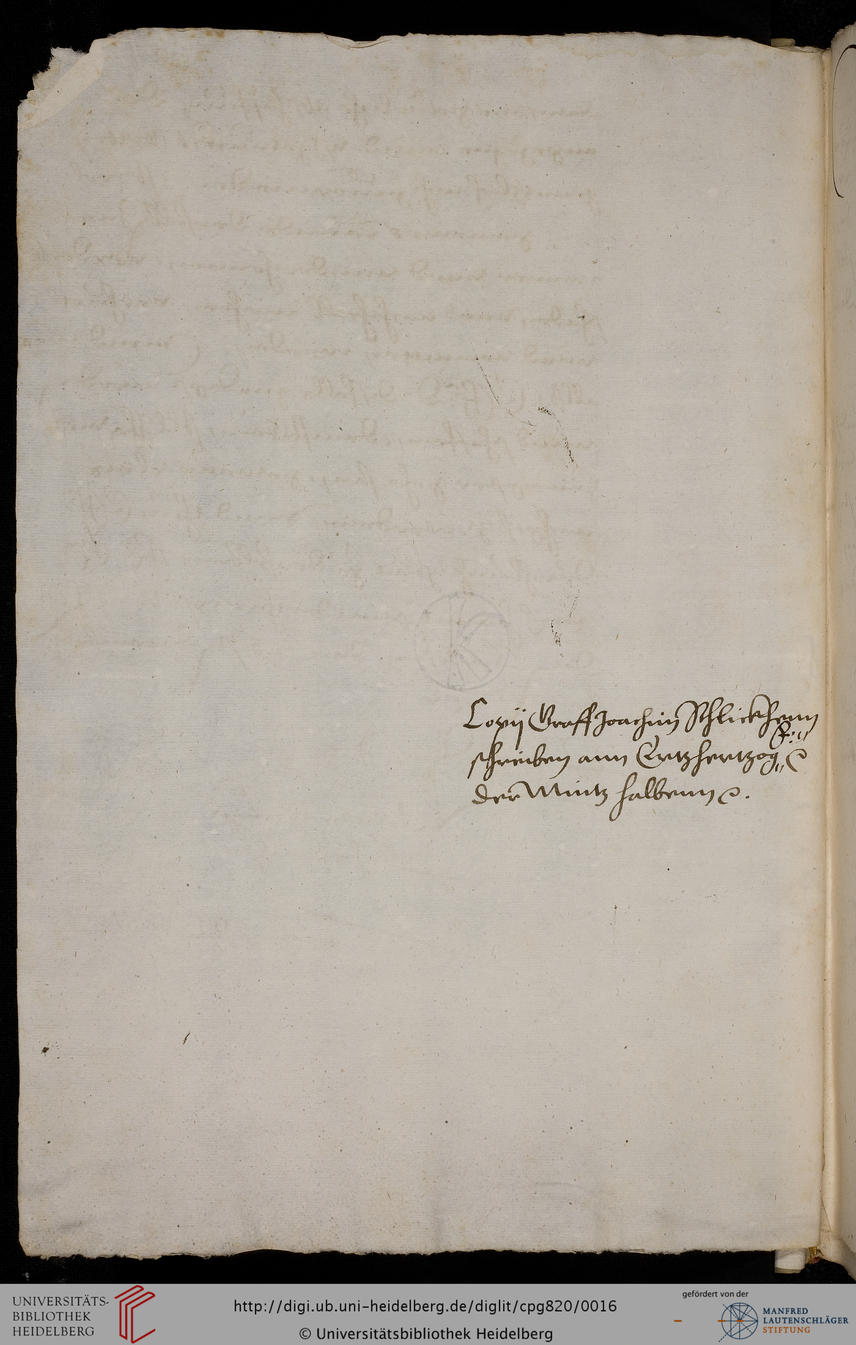 Copij Graff Joachim Schlickhenn
schreiben ann Ertzhertzog F: ⁊c
der Müntz halbenn ⁊c.
UNIVERSITÄTS-
BIBLIOTHEK
HEIDELBERG
http://digi.ub.uni-heidelberg.de/diglit/cpg820/0016
© Universitätsbibliothek Heidelberg
gefördert von der
MANFRED
LAUTENSCHLÄGER
STIFTUNG